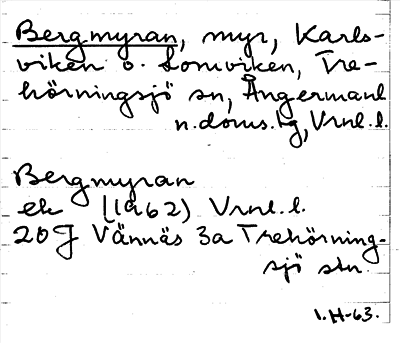 Bergmyran, myr, Karls-
viken o. Lomviken, Tre-
hörningsjö sn, Ångermanl
n.doms.lg, Vrnl. l.
Bergmyran
ek (1962) Vrnl. l.
20J Vännäs 3a Trehörning-
sjö stn.
I.H-63.